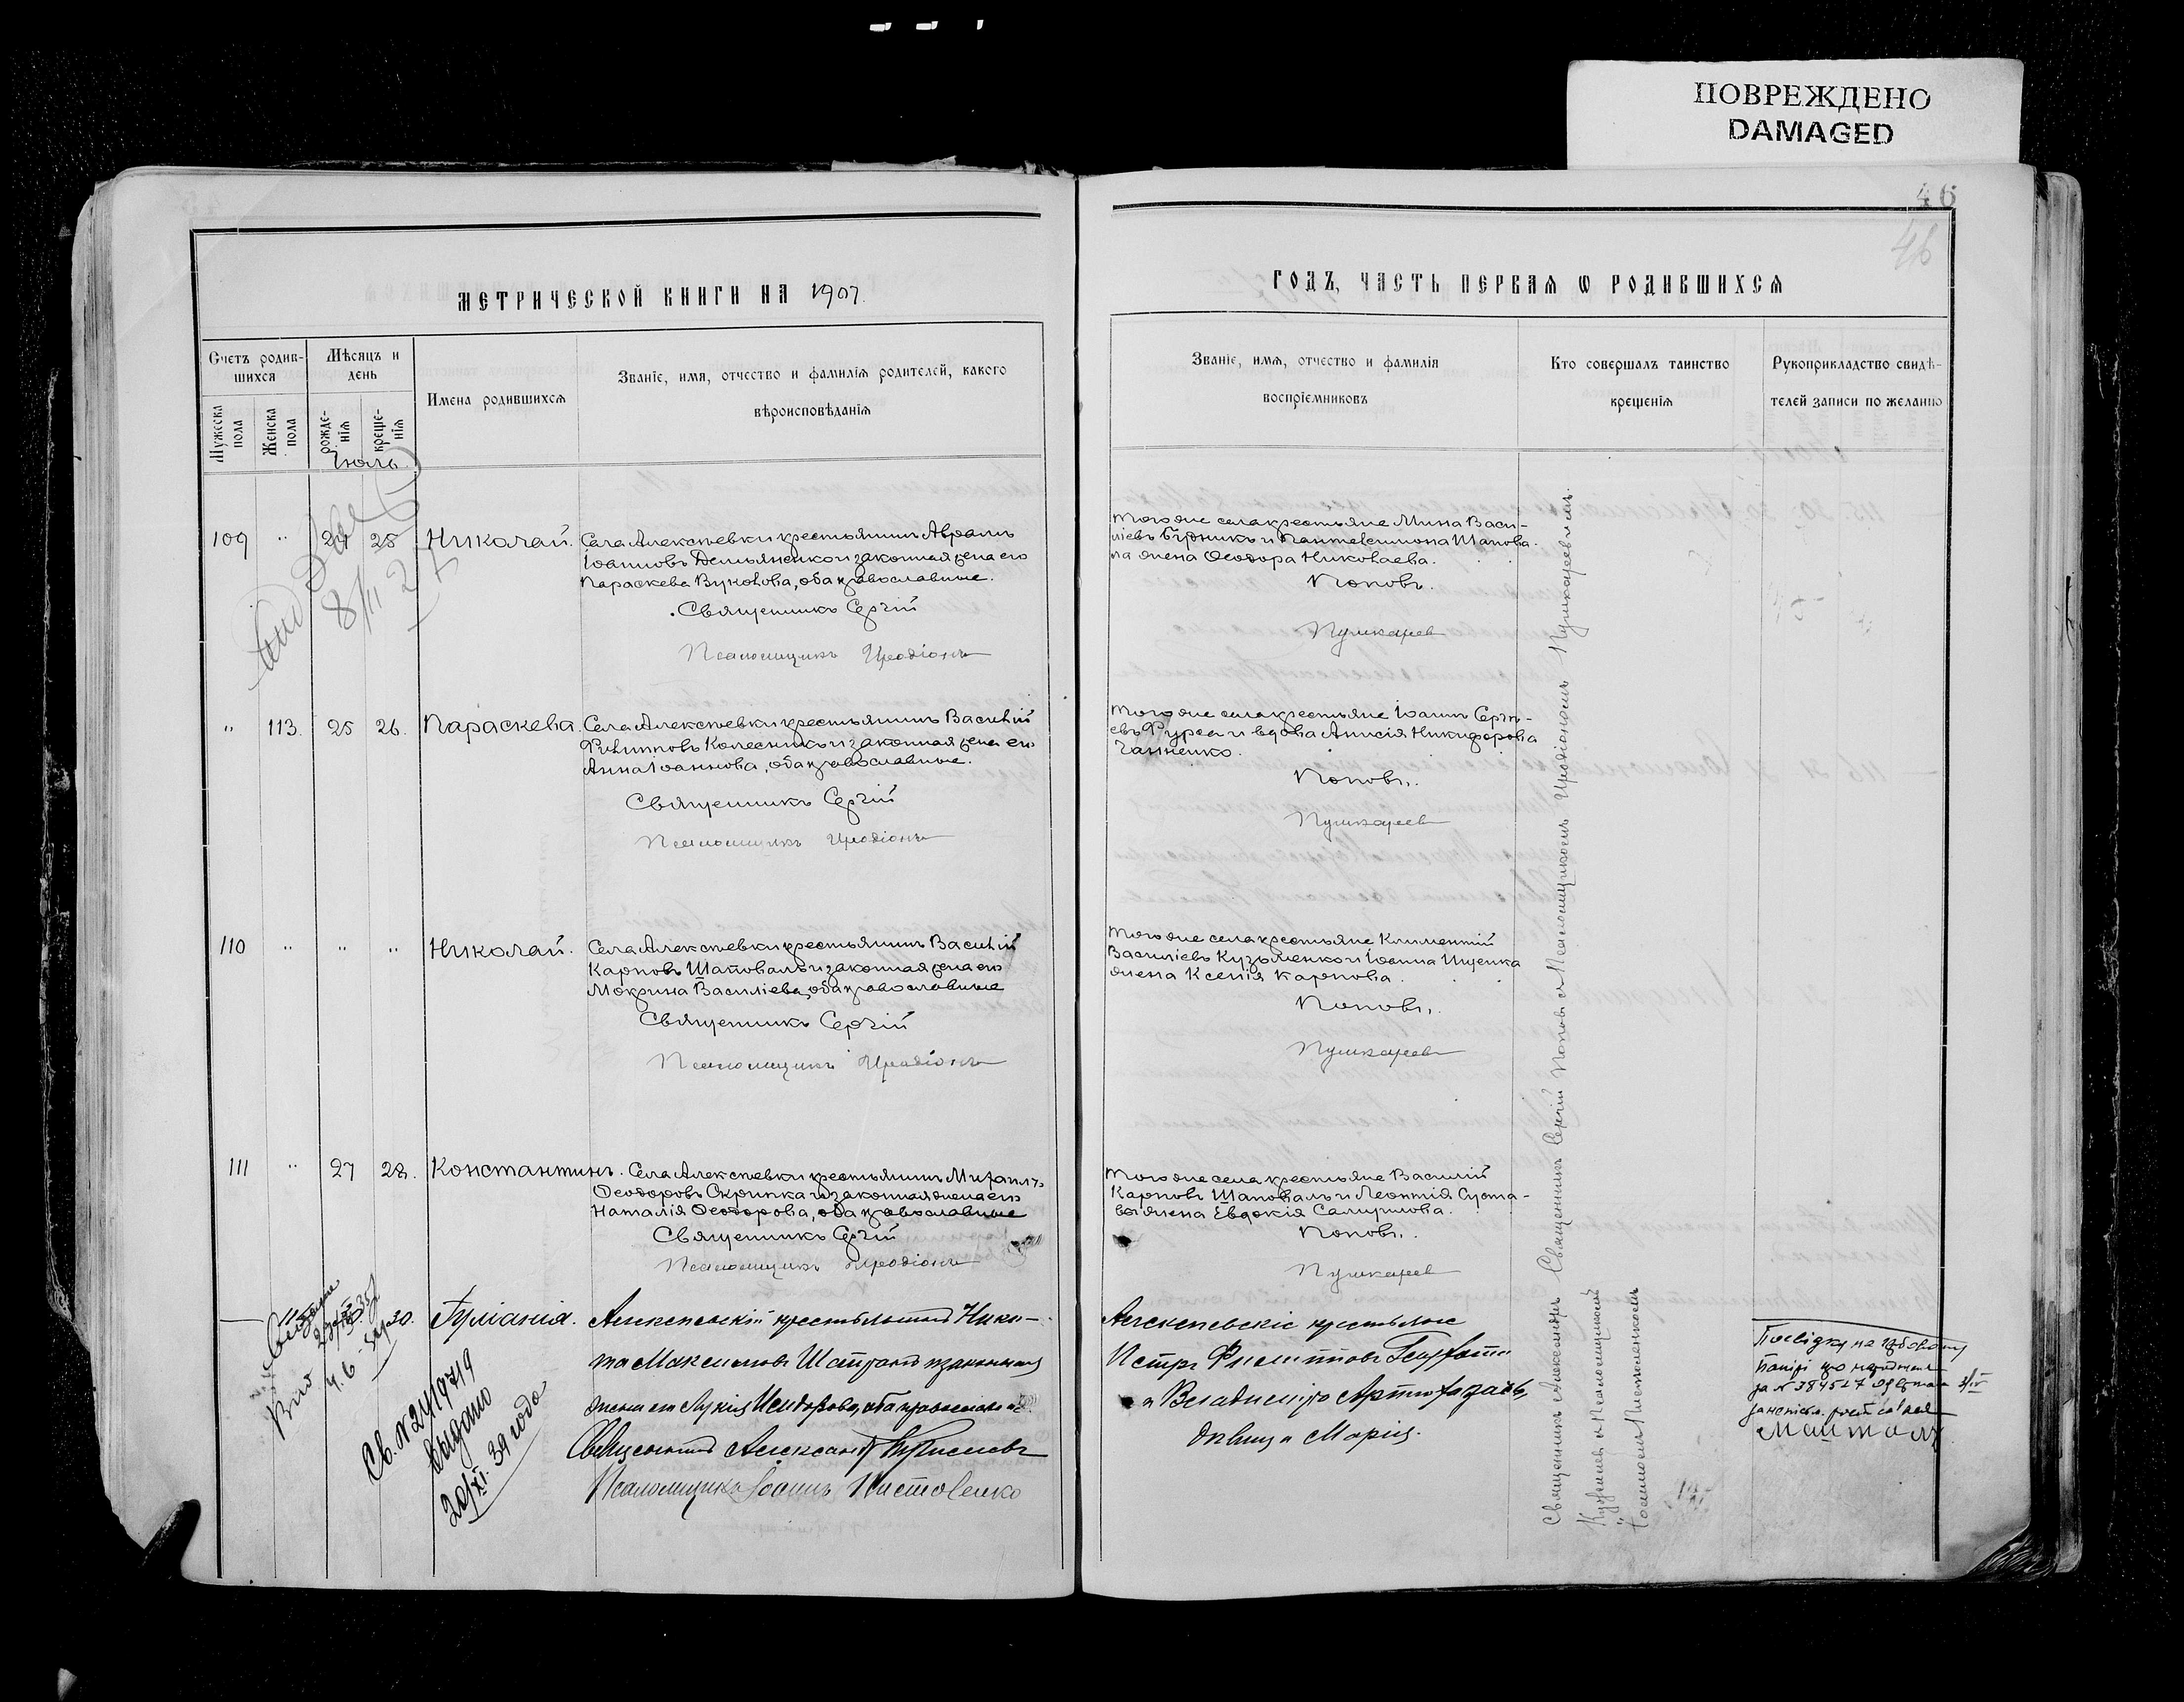 ПОВРЕЖДЕНО
DAMAGED
46
46
МЕТРИЧЕСКОЙ КНИГИ НА 1907.
ГОДЪ, ЧАСТЬ ПЕРВАЯ Ѡ РОДИВШИХСЯ
Счетъ родив-
шихся
Мѣсяцъ и
день
Имена родившихся
Званіе, имя, отчество и фамилія родителей, какого
вѣроисповѣданія
Мужеска
пола
Женска
пола
рожде-
нія
креще-
нія
Званіе, имя, отчество и фамилія
воспріемниковъ
Кто совершалъ таинство
крещенія
Рукоприкладство свидѣ-
телей записи по желанію
Іюль
109 " 24 25 Николай. Села Алексѣевки крестьянинъ Авраамъ
Іоанновъ Демьяненко и законная жена его
Параскева Вуколова, оба православные.
Священникъ Сергій
Псаломщикъ Иродіонъ
Того же села крестьяне Мина Васи-
ліевъ Будникъ и Пантелеимона Шапова-
ла жена Ѳеодора Николаева.
Поповъ.
Пушкарев
" 113. 25 26. Параскева. Села Алексѣевки крестьянинъ Василій
Филипповъ Колесникъ и законная жена его
Анна Іоаннова, оба православные.
Священникъ Сергій
Псаломщикъ Иродіонъ
Того же села крестьяне Іоаннъ Сергѣ-
евъ Фурса и вдова Анисія Никифорова
Ганненко.
Поповъ.
Пушкарев
110 " " " Николай. Села Алексѣевки крестьянинъ Василій
Карповъ Шаповалъ и законная жена его
Мокрина Василіева, оба православные
Священникъ Сергій
Псаломщикъ Иродіонъ
Того же села крестьяне Климентій
Василіевъ Кузьменко и Іоанна Ищенка
жена Ксенія Карпова.
Поповъ.
Пушкарев
111 " 27 28. Константинъ. Села Алексѣевки крестьянинъ Михаилъ
Ѳеодоровъ Скрипка и законная жена его
Наталія Ѳеодорова, оба православные
Священникъ Сергій
Псаломщикъ Иродіонъ
Того же села крестьяне Василій
Карповъ Шаповалъ и Леонтія Суста-
вы жена Евдокія Самуилова.
Поповъ.
Пушкарев
30. Іуліанія. Алексѣевскій крестьянинъ Ники-
та Максимовъ и законная
жена его Лукія Исидорова, оба православные
Священникъ Александръ
Псаломщикъ Іоаннъ
Алексѣевскіе крестьяне
Петръ Филипповъ
и Владиміра
дѣвица Марія.
Св. №
выдано
20/XI. 39 года
Священникъ Сергій Поповъ и Псаломщикомъ Иродіономъ Пушкаревымъ.
Священникъ Александръ
и Псаломщикомъ
Іоанномъ